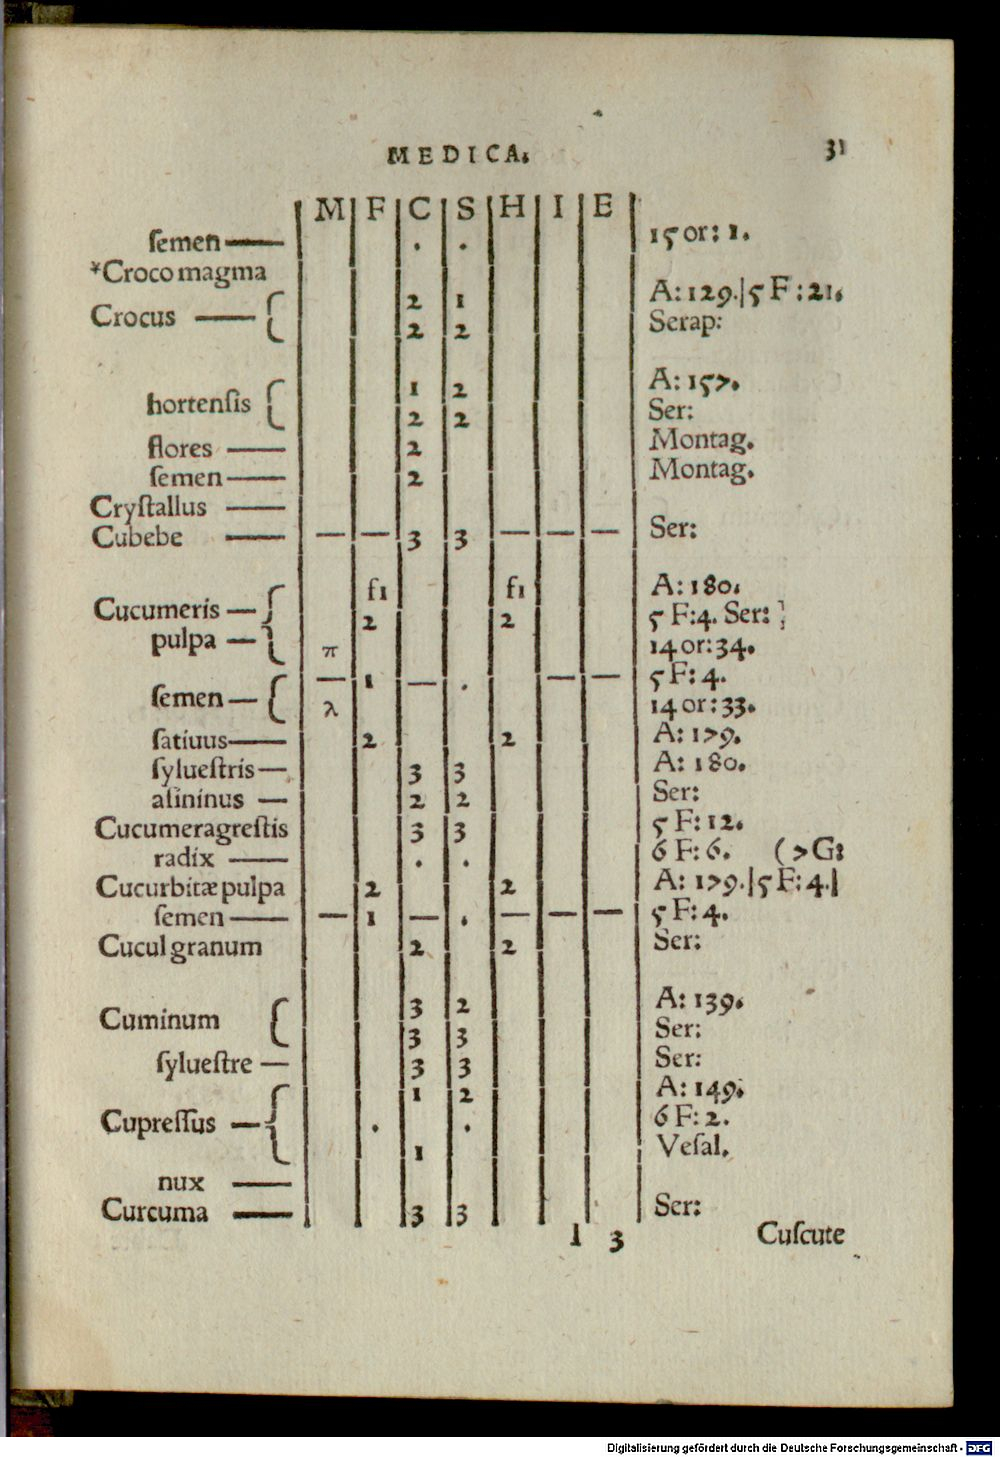 MEDICA. 31
M F C S H I E
ſemen — . . 15 or: 1.
*Croco magma
Crocus — { 2 1 A: 129.|5 F: 21.
2 2 Serap:
hortenſis { 1 2 A: 157.
2 2 Ser:
flores — 2 Montag.
ſemen — 2 Montag.
Cryſtallus —
Cubebe — — — 3 3 — — — Ser:
f1 f1 A: 180.
Cucumeris — { 2 2 5 F: 4. Ser:
pulpa — { π 14 or: 34.
— 1 — . — — 5 F: 4.
ſemen — { λ 14 or: 33.
ſatiuus — 2 2 A: 179.
ſylueſtris — 3 3 A: 180.
aſininus — 2 2 Ser:
Cucumeragreſtis 3 3 5 F: 12.
radix — . . 6 F: 6. (7 G:
Cucurbitæ pulpa 2 2 A: 179.|5 F: 4.|
ſemen — — 1 — . — — — 5 F: 4.
Cucul granum 2 2 Ser:
3 2 A: 139.
Cuminum { 3 3 Ser:
ſylueſtre — 3 3 Ser:
1 2 A: 149.
Cupreſſus — { . . 6 F: 2.
1 Veſal.
nux —
Curcuma — 3 3 Ser:
I 3 Cuſcute
Digitalisierung gefördert durch die Deutsche Forschungsgemeinschaft - DFG